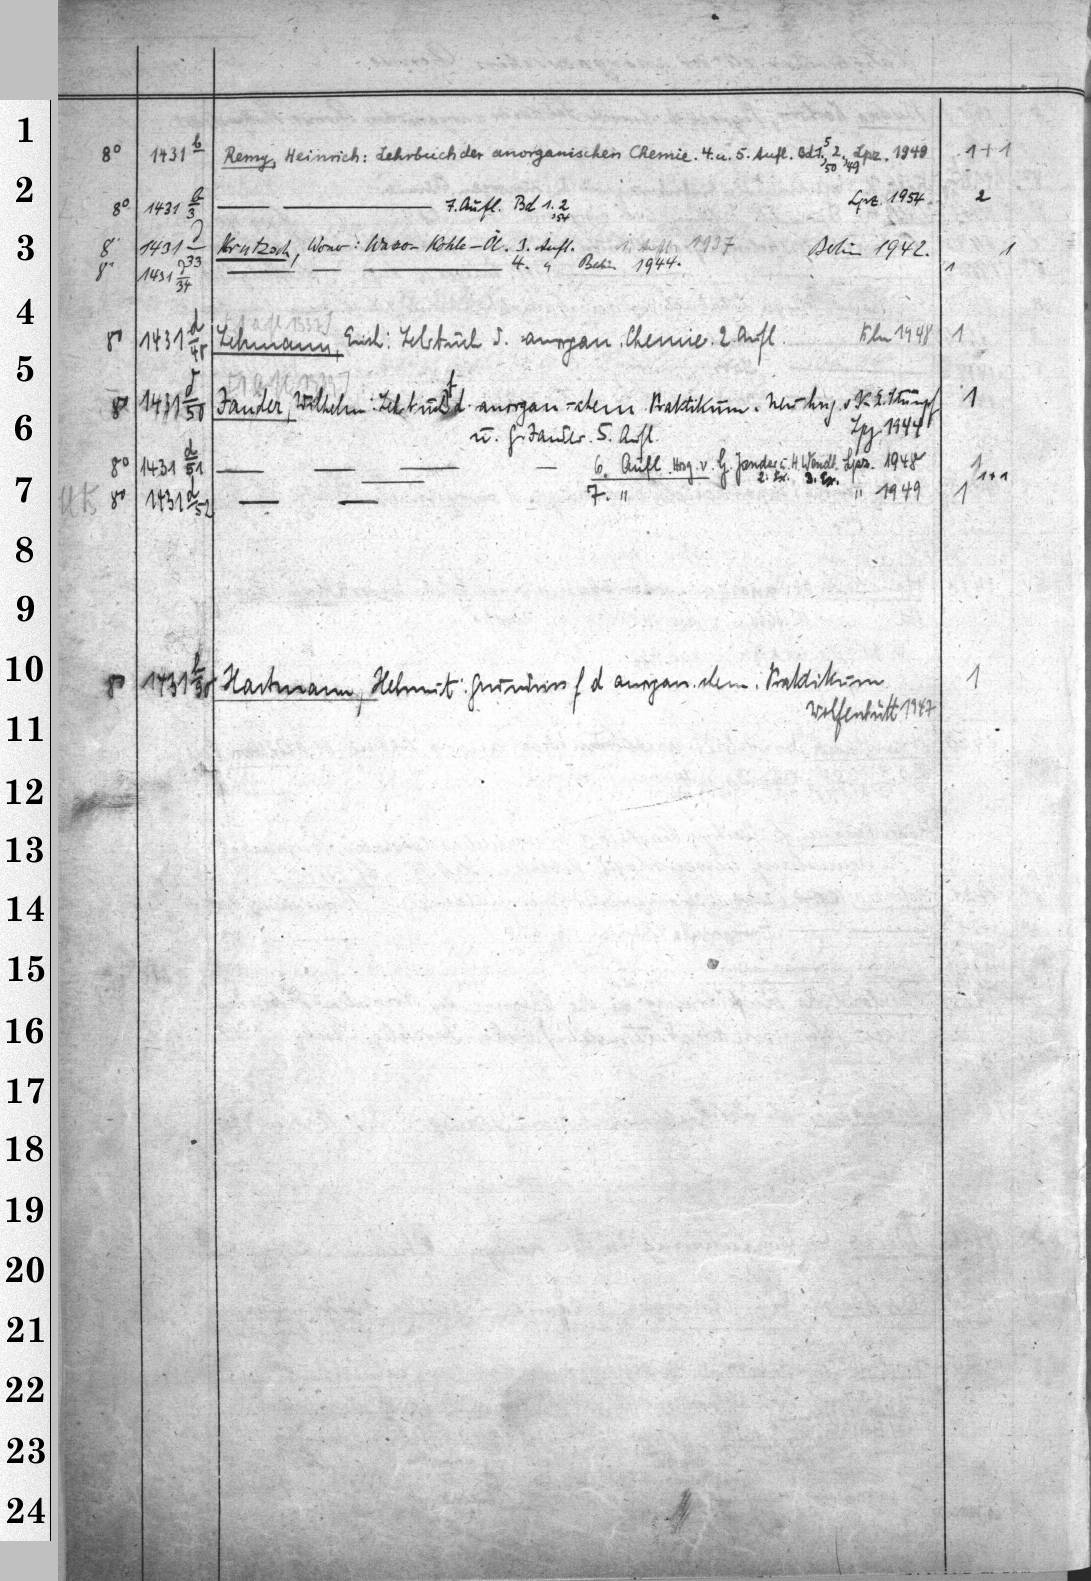 1
8° 1431 b Remy, Heinrich: Lehrbuch der anorganischen Chemie. 4. u. 5. Aufl. Bd 1., 2., Lpz. 1948 1+1
50 49
2
8° 1431 b/3 — — 7. Aufl. Bd 1. 2 Lpz. 1954 2
54
3
8° 1431 /33 Krutzsch, Werner: Wasser Kohle-Öl. 3. Aufl. 1. Aufl. 1937 Berlin 1942. 1
8° 1431 /34 — — — 4. " Berlin 1944. 1
4
8° 1431 d/48 Lehmann, Erich: Lehrbuch d. anorgan. Chemie. 2. Aufl. Köln 1948 1
5
8° 1431 d/50 Jander, Wilhelm: Lehrbuch d. anorgan-chem Praktikum. Neu hrsg. v. K. E. Stumpf 1
6
u. G. Jander. 5. Aufl. Lpz 1944
8° 1431 d/51 — — — — 6. Aufl. Hrsg. v. G. Jander u. H. Wendt. Lpz. 1948 1
2. Ex. 3. Ex. 1+1
7
8° 1431 d/52 — — 7. " " 1949 1
8
9
10
8° 1431 Hartmann, Helmut: Grundriss f d anorgan. chem. Praktikum 1
Wolfenbütt 1947
11
12
13
14
15
16
17
18
19
20
21
22
23
24